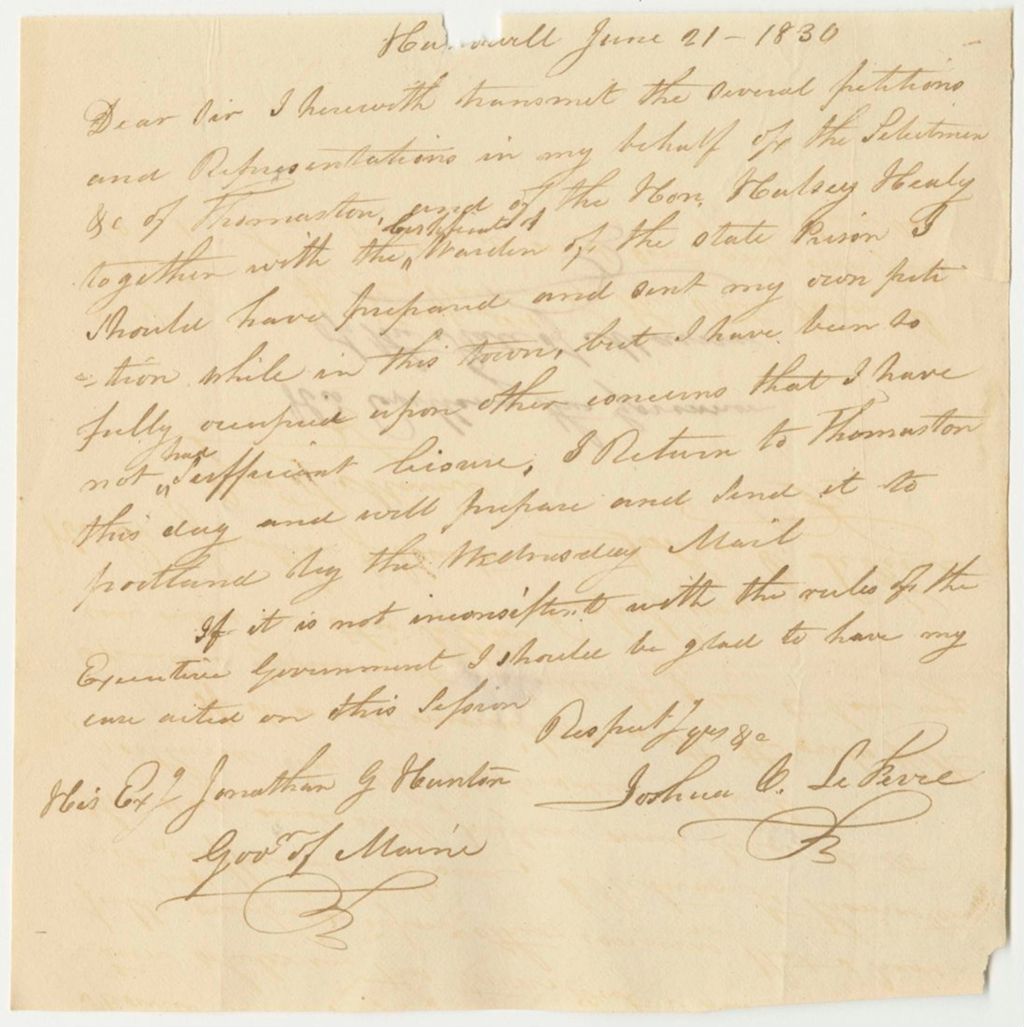 June 21 - 1830
Dear Sir I herewith transmit the several petitions
and Representations in my behalf of the Selectmen
&c of Thomaston, and of the Hon. Halsey Healy
together with the Certificate of Warden of the state Prison I
Should have prepared and sent my own peti
=tion while in this town, but I have been so
fully occupied upon other concerns that I have
not had Sufficient leisure, I Return to Thomaston
this day and will prepare and Send it to
portland by the Wednesday Mail
If it is not inconsistent with the rules of the
Executive Government I should be glad to have my
case acted on this Session
Respectfy yrs &c
Joshua C. LeFevre
His Exy Jonathan G Hunton
Govr of Maine